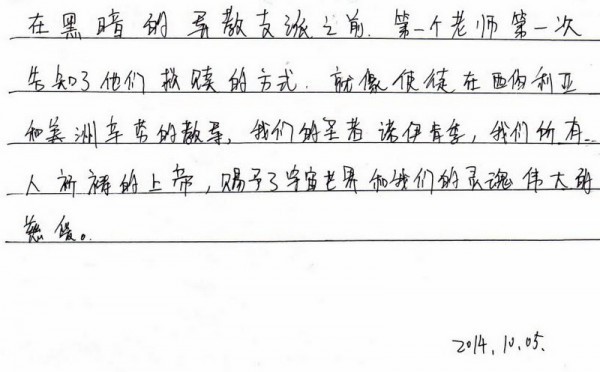 在黑暗的异教支派之前.第一个老师第一次
告知了他们救赎的方式.就像使徒在西伯利亚
和美洲辛劳的教导,我们的圣者诺伊肯季,我们所有
人祈祷的上帝,赐予了宇宙世界和我们的灵魂伟大的
慈悲。
2014.10.05.